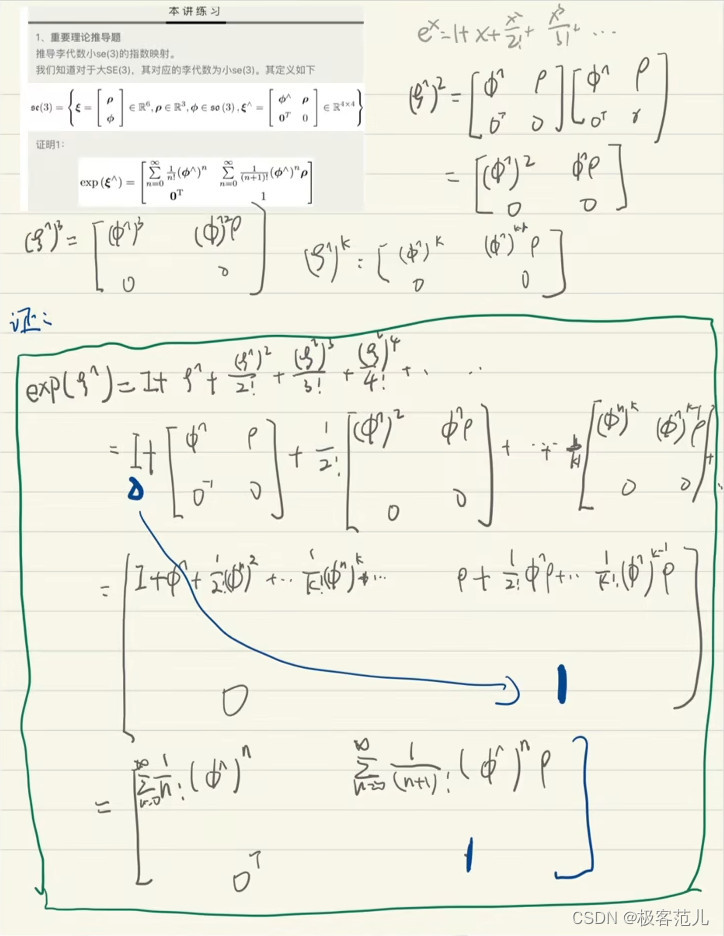 本讲练习
1、重要理论推导题
推导李代数小se(3)的指数映射。
我们知道对于大SE(3)，其对应的李代数为小se(3)。其定义如下
se(3) = { ξ = [ρ; ϕ] ∈ ℝ⁶, ρ ∈ ℝ³, ϕ ∈ so(3), ξ^ = [ϕ^ ρ; 0ᵀ 0] ∈ ℝ⁴ˣ⁴ }
证明1:
exp(ξ^) = [∑_{n=0}^{∞} 1/n! (ϕ^)ⁿ ∑_{n=0}^{∞} 1/(n+1)! (ϕ^)ⁿρ; 0ᵀ 1]
eˣ=1+x+x²/2!+x³/3!…
(ξ^)² = [ϕ^ ρ; 0ᵀ 0][ϕ^ ρ; 0ᵀ 0]
= [(ϕ^)² ϕ^ρ; 0 0]
(ξ^)³ = [(ϕ^)³ (ϕ^)²ρ; 0 0]
(ξ^)ᵏ = [(ϕ^)ᵏ (ϕ^)ᵏ⁻¹ρ; 0 0]
证:
exp(ξ^) = I + ξ^ + (ξ^)²/2! + (ξ^)³/3! + (ξ^)⁴/4! + ⋯
= I + [ϕ^ ρ; 0ᵀ 0] + 1/2! [(ϕ^)² ϕ^ρ; 0 0] + ⋯ + 1/k! [(ϕ^)ᵏ (ϕ^)ᵏ⁻¹ρ; 0 0] + …
= [I+ϕ^+1/2!(ϕ^)²+⋯1/k!(ϕ^)ᵏ+⋯ ρ+1/2!ϕ^ρ+⋯1/k!(ϕ^)ᵏ⁻¹ρ; 0 1]
= [∑_{n=0}^{∞} 1/n! (ϕ^)ⁿ ∑_{n=0}^{∞} 1/(n+1)! (ϕ^)ⁿρ; 0ᵀ 1]
CSDN @极客范儿